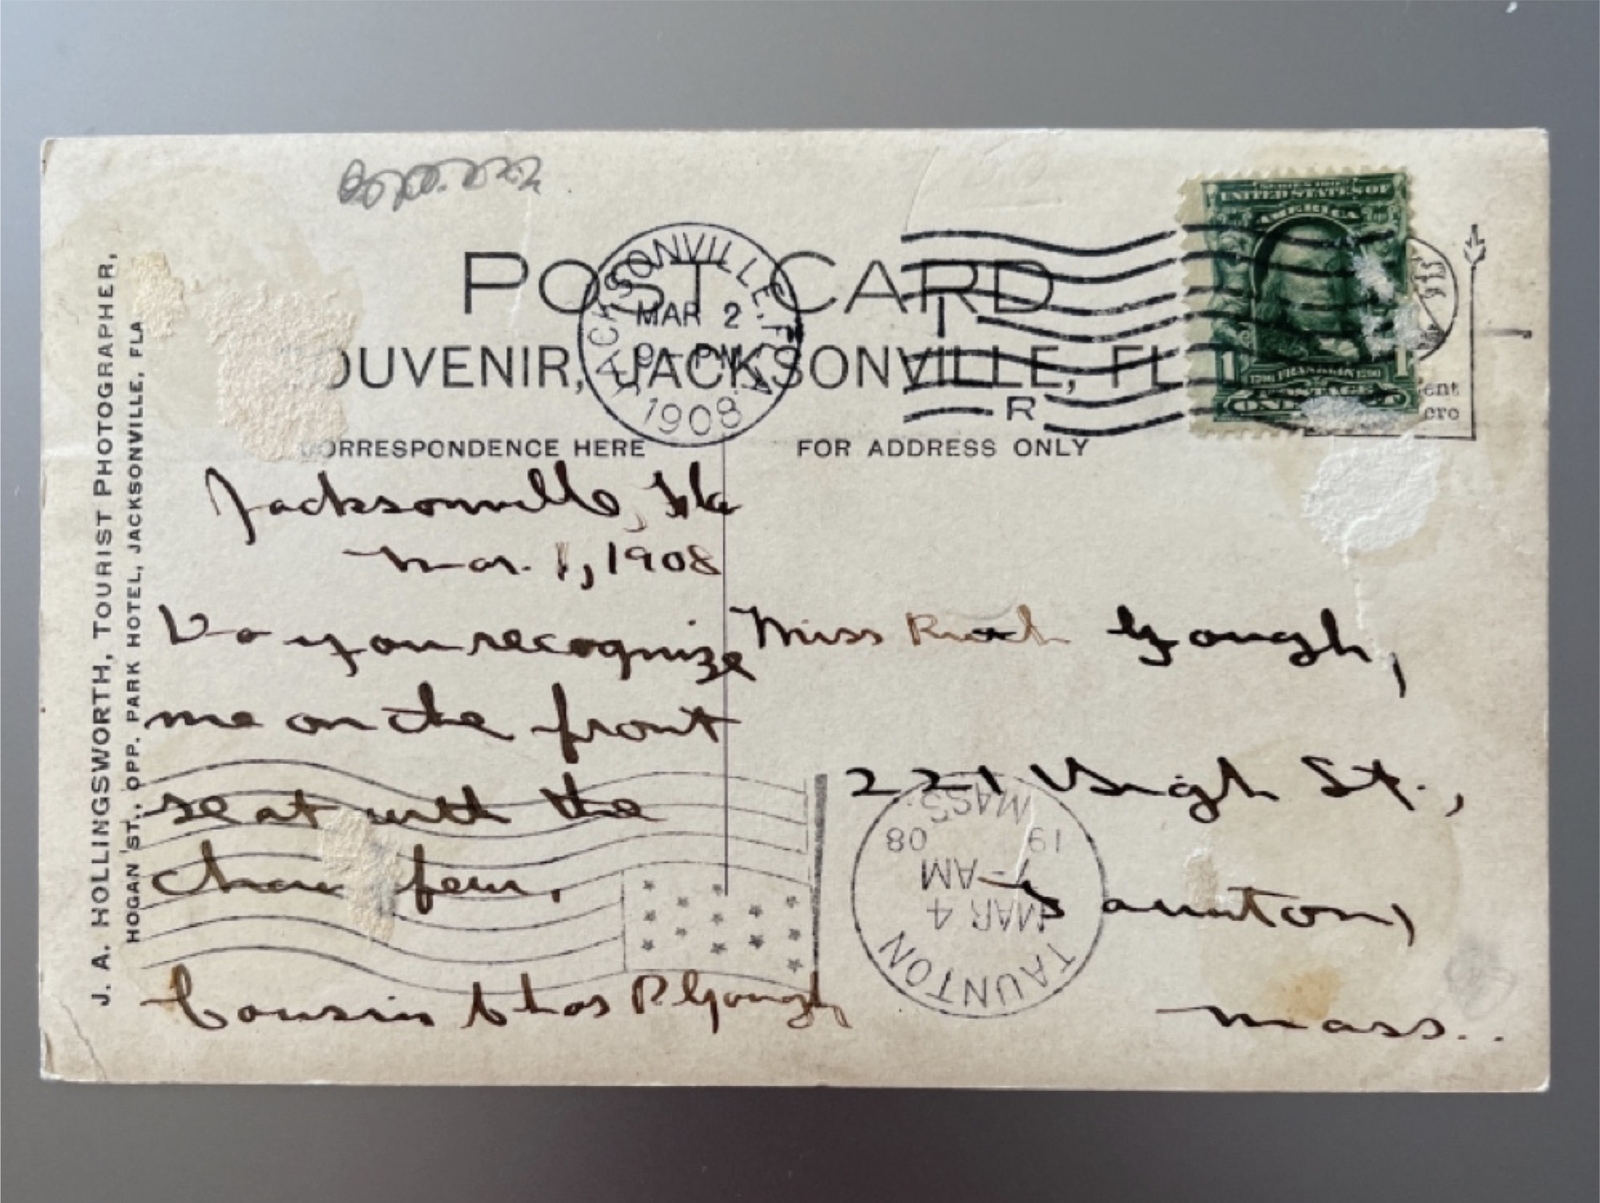 POST CARD
SOUVENIR, JACKSONVILLE, FL
JACKSONVILLE, FLA.
MAR 2
PM
1908
R
UNITED STATES OF
AMERICA
1 1
FRANKLIN
CORRESPONDENCE HERE
FOR ADDRESS ONLY
J. A. HOLLINGSWORTH, TOURIST PHOTOGRAPHER,
HOGAN ST., OPP. PARK HOTEL, JACKSONVILLE, FLA
Jacksonville, Fla
Mar. 1, 1908
Do you recognize
me on the front
seat with the
chau feur.
Cousin Chas P. Gough
Miss Ruth Gough,
221 High St.,
Taunton,
Mass..
TAUNTON
MAR 4
7-AM
19 08
MASS.